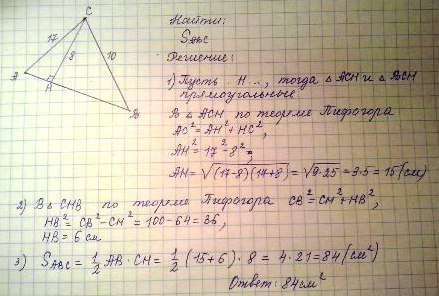 C
17
8
10
A
H
B
Найти:
S ABC
Решение:
1) Пусть H..., тогда △ ACH и △ BCH
прямоугольные
В △ ACH по теореме Пифагора
AC² = AH² + HC²,
AH² = 17² - 8²,
AH = √(17-8)(17+8) = √9·25 = 3·5 = 15 (см)
2) В △ CHB по теореме Пифагора CB² = CH² + HB²,
HB² = CB² - CH² = 100 - 64 = 36,
HB = 6 см
3) S ABC = 1/2 AB · CH = 1/2 (15+6) · 8 = 4 · 21 = 84 (см²)
Ответ: 84 см²